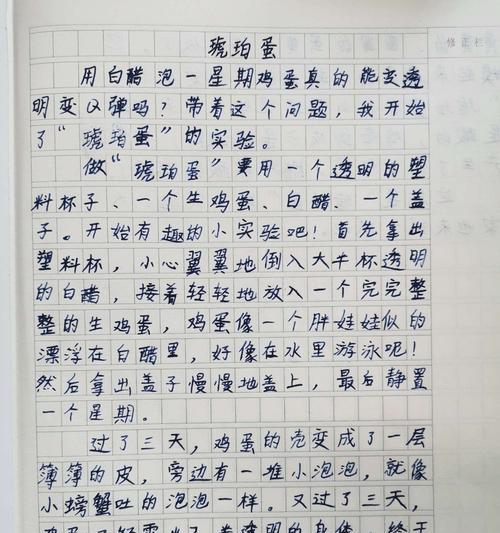 修正栏
琥珀蛋
用白醋泡一星期鸡蛋真的能变透
明变Q弹吗？带着这个问题，我开始
了“琥珀蛋”的实验。
做“琥珀蛋”需用一个透明的塑
料杯子、一个生鸡蛋、白醋、一个盖
子。开始有趣的小实验吧！首先拿出
塑料杯，小心翼翼地倒入大半杯透明
的白醋，接着轻轻地放入一个完完整
整的生鸡蛋，鸡蛋像一个胖娃娃似的
漂浮在白醋里，好像在水里游泳呢！
然后拿出盖子慢慢地盖上，最后静置
一个星期。
过了三天，鸡蛋的壳变成了一层
薄薄的皮，旁边有一堆小泡泡，就像
小螃蟹吐的泡泡一样。又过了三天，
鸡蛋已经露出了半透明的身体，终于